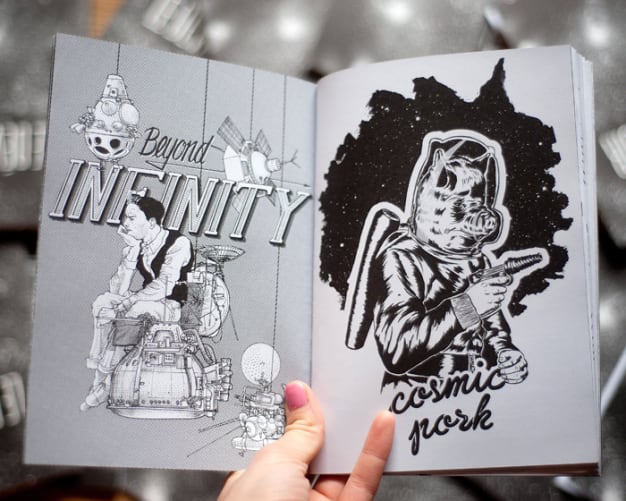 Beyond
INFINITY
cosmic
pork